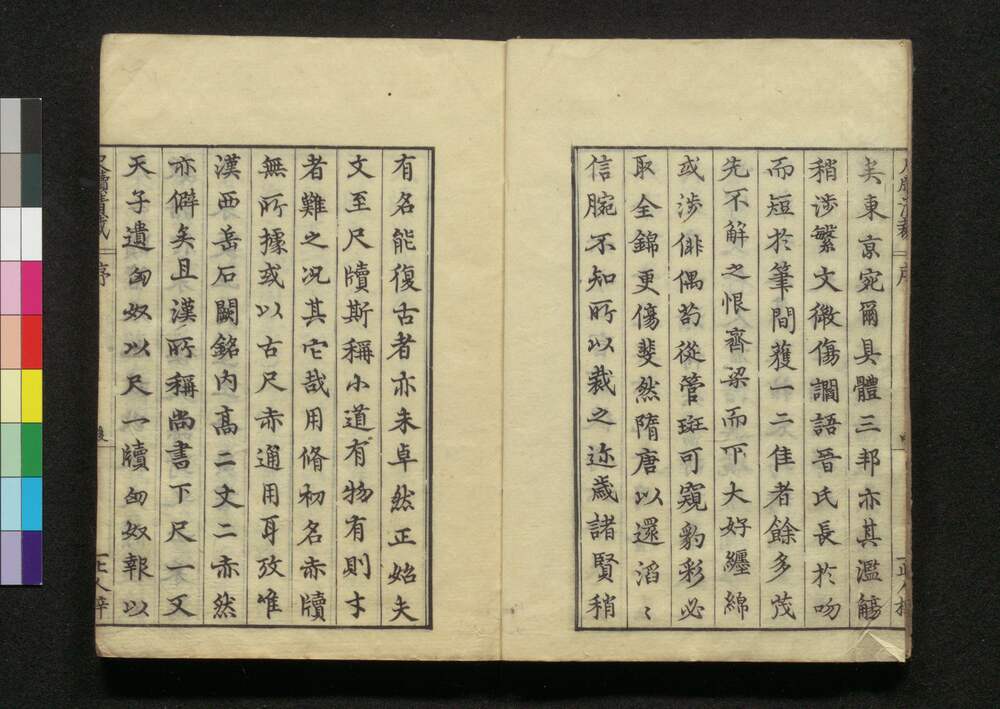 矣東京宛爾具體三邦亦其濫觴
稍涉繁文微傷調語晉氏長於吻
而短於筆間蒦一二佳者餘多茂
先不解之恨齊梁而下大好纏綿
或涉俳偶苟從管斑可窺豹彩必
取全錦更傷斐然隋唐以還滔〻
信腕不知所以裁之迩歲諸賢稍
有名能復古者亦未卓然正始夫
文至尺牘斯稱小道有物有則才
者難之况其它哉用脩初名赤牘
無所據或以古尺赤通用耳攷唯
漢西岳石闕銘內高二丈二赤然
亦僻矣且漢所稱尚書下尺一又
天子遺匈奴以尺一牘匈奴報以
尺牘清裁
序